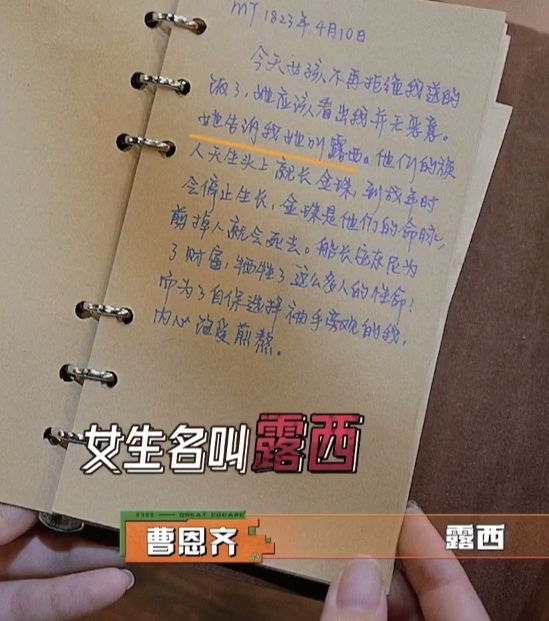 MT 1823年4月10日
今天女孩不再拒绝我送的
饭了,她应该看出我并无恶意。
她告诉我她叫露西。他们的族
人天生头上就长金珠,到成年时
会停止生长,金珠是他们的命脉,
剪掉人就会死去。船长安东尼为
了财富,牺牲了这么多人的性命!
而为了自保选择袖手旁观的我,
内心饱受煎熬。
女生名叫露西
GREAT ESCAPE
曹恩齐
露西